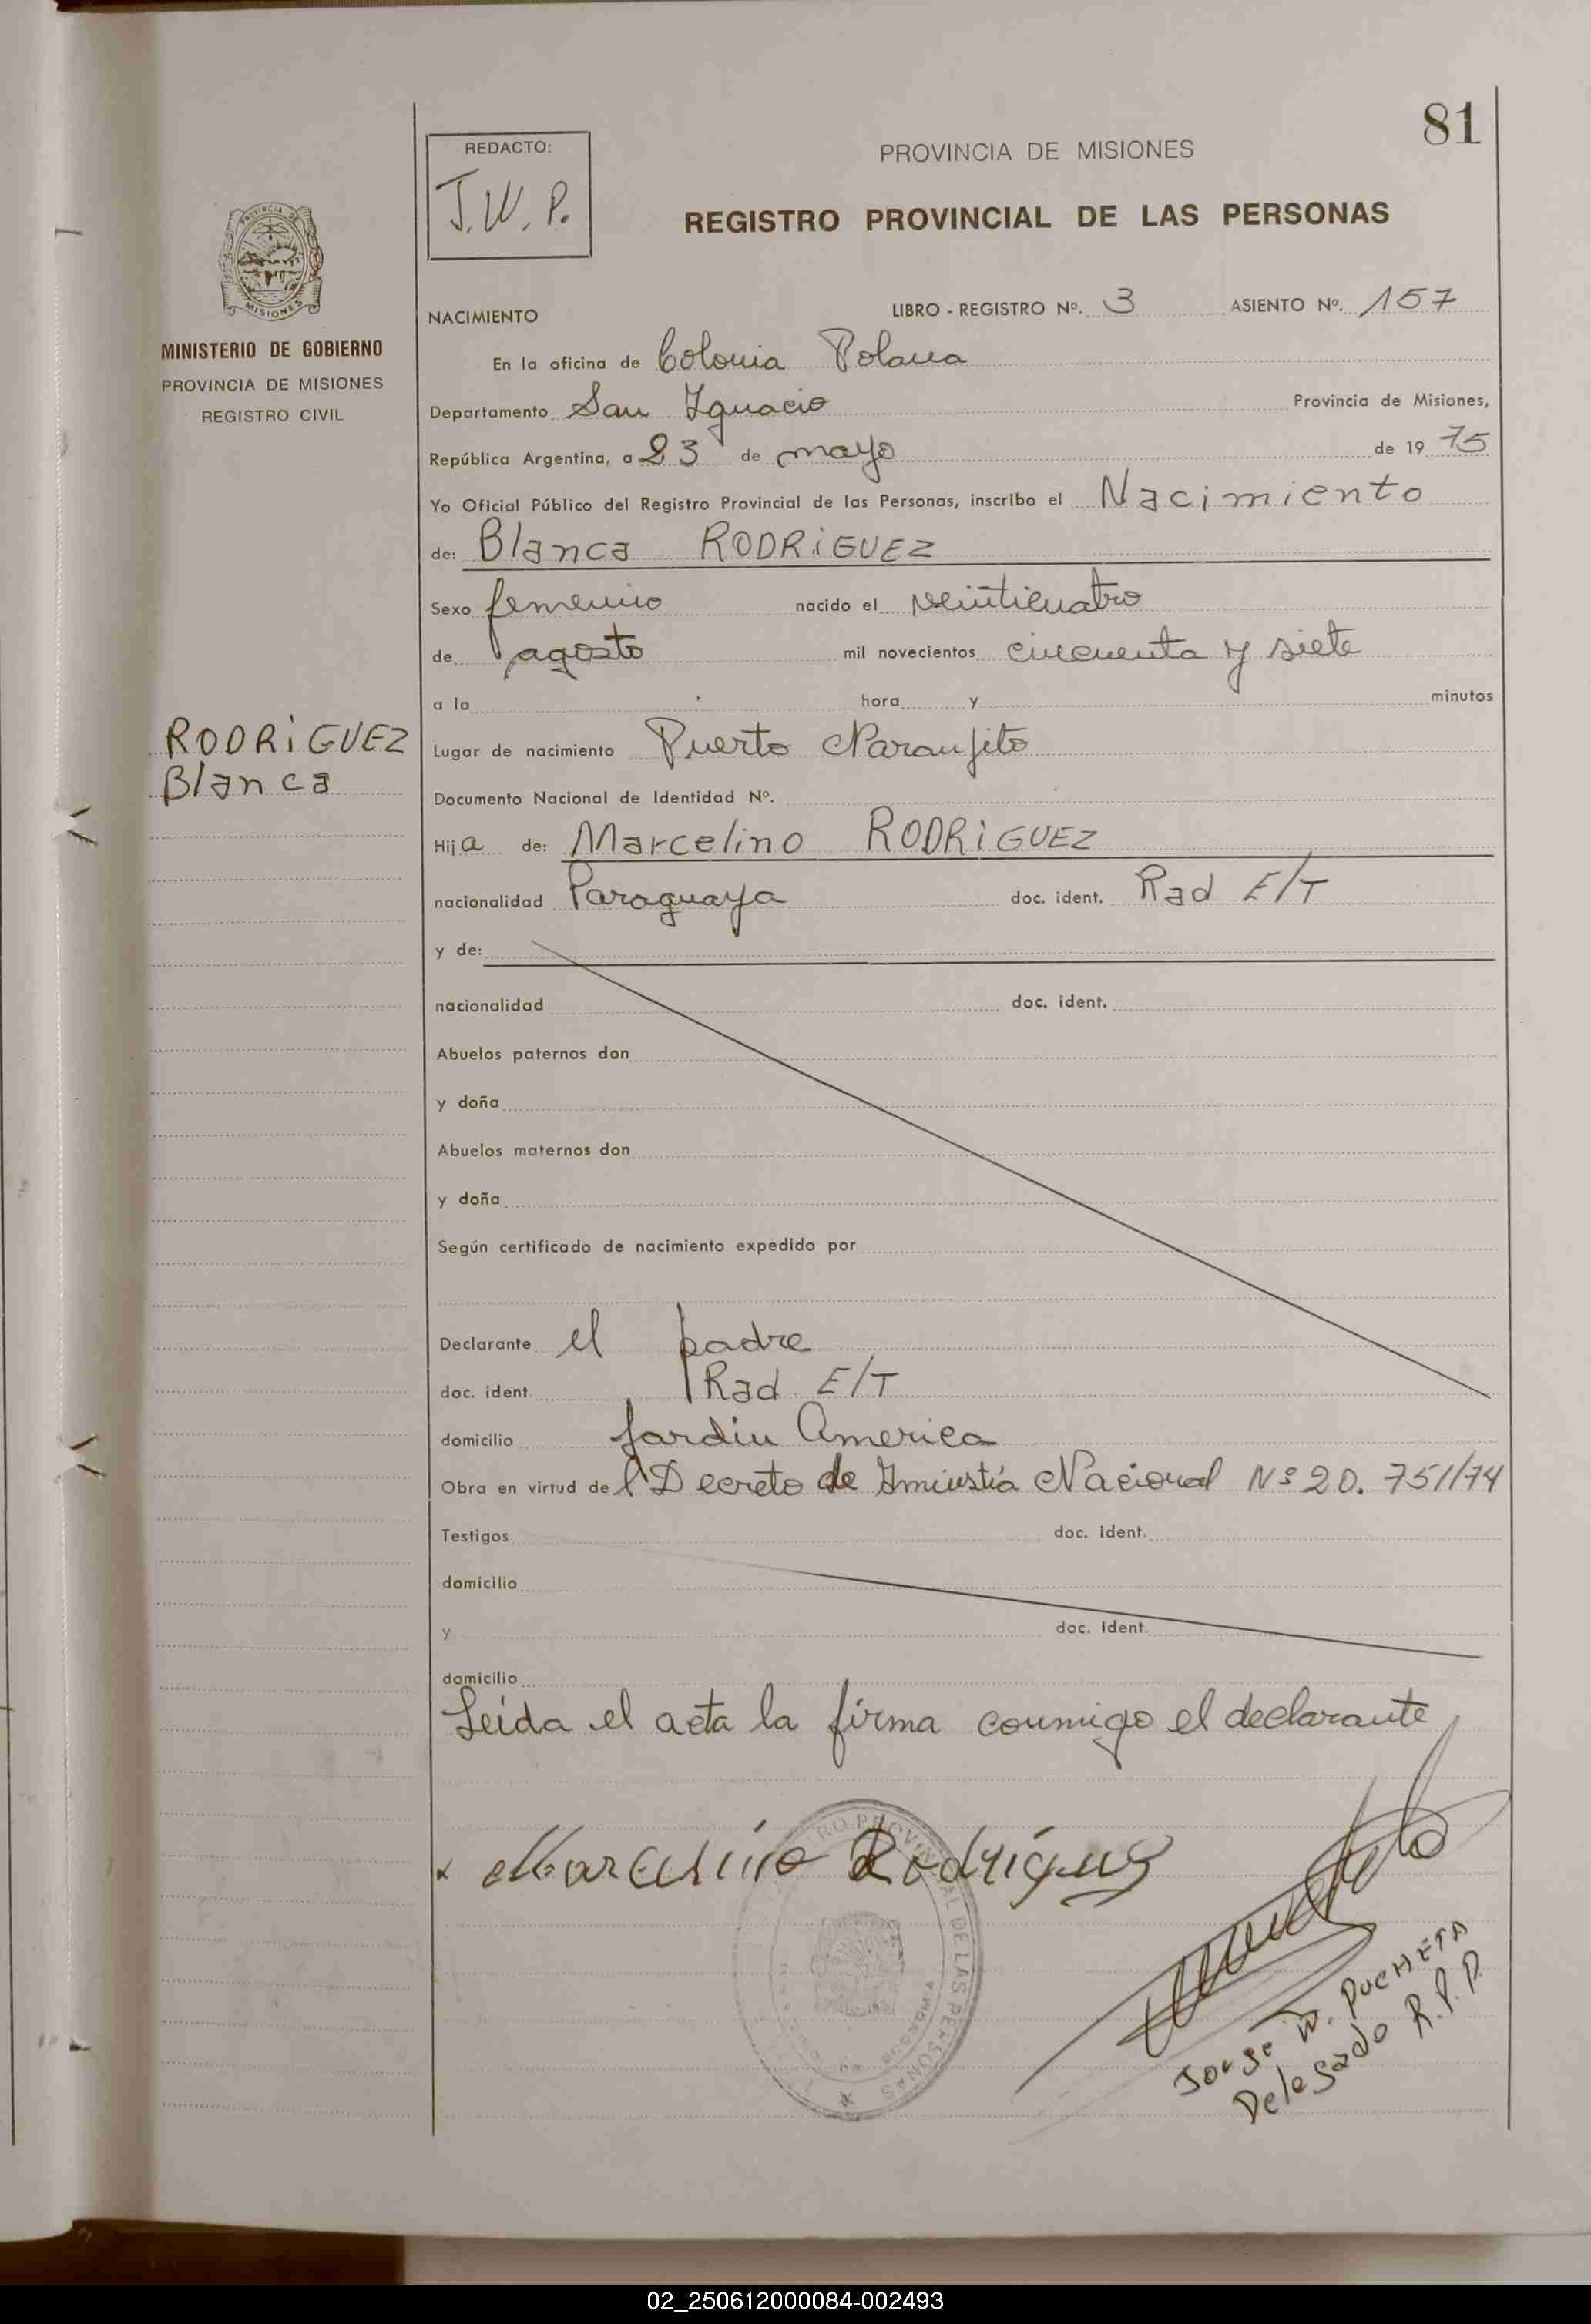 81
REDACTO:
J.W.P.
PROVINCIA DE MISIONES
REGISTRO PROVINCIAL DE LAS PERSONAS
PROVINCIA DE
MISIONES
MINISTERIO DE GOBIERNO
PROVINCIA DE MISIONES
REGISTRO CIVIL
NACIMIENTO LIBRO - REGISTRO Nº. 3 ASIENTO Nº. 157
En la oficina de Colonia Polana
Departamento San Ignacio Provincia de Misiones,
República Argentina, a 23 de mayo de 1975
Yo Oficial Público del Registro Provincial de las Personas, inscribo el Nacimiento
de: Blanca RODRIGUEZ
Sexo femenino nacido el veinticuatro
de agosto mil novecientos cincuenta y siete
a la hora y minutos
RODRIGUEZ
Blanca
Lugar de nacimiento Puerto Naranjito
Documento Nacional de Identidad Nº.
Hija de: Marcelino RODRIGUEZ
nacionalidad Paraguaya doc. ident. Rad E/T
y de:
nacionalidad doc. ident.
Abuelos paternos don
y doña
Abuelos maternos don
y doña
Según certificado de nacimiento expedido por
Declarante el padre
doc. ident. Rad E/T
domicilio Jardin America
Obra en virtud del Decreto de Amnistía Nacional Nº 20.751/74
Testigos doc. ident.
domicilio
y doc. Ident.
domicilio
Leida el acta la firma conmigo el declarante
x Marcelino Rodriguez
RO PROVINCIAL DE LAS PERSONAS
Jorge W. PUCHETA
Delegado R.P.P.
02_250612000084-002493